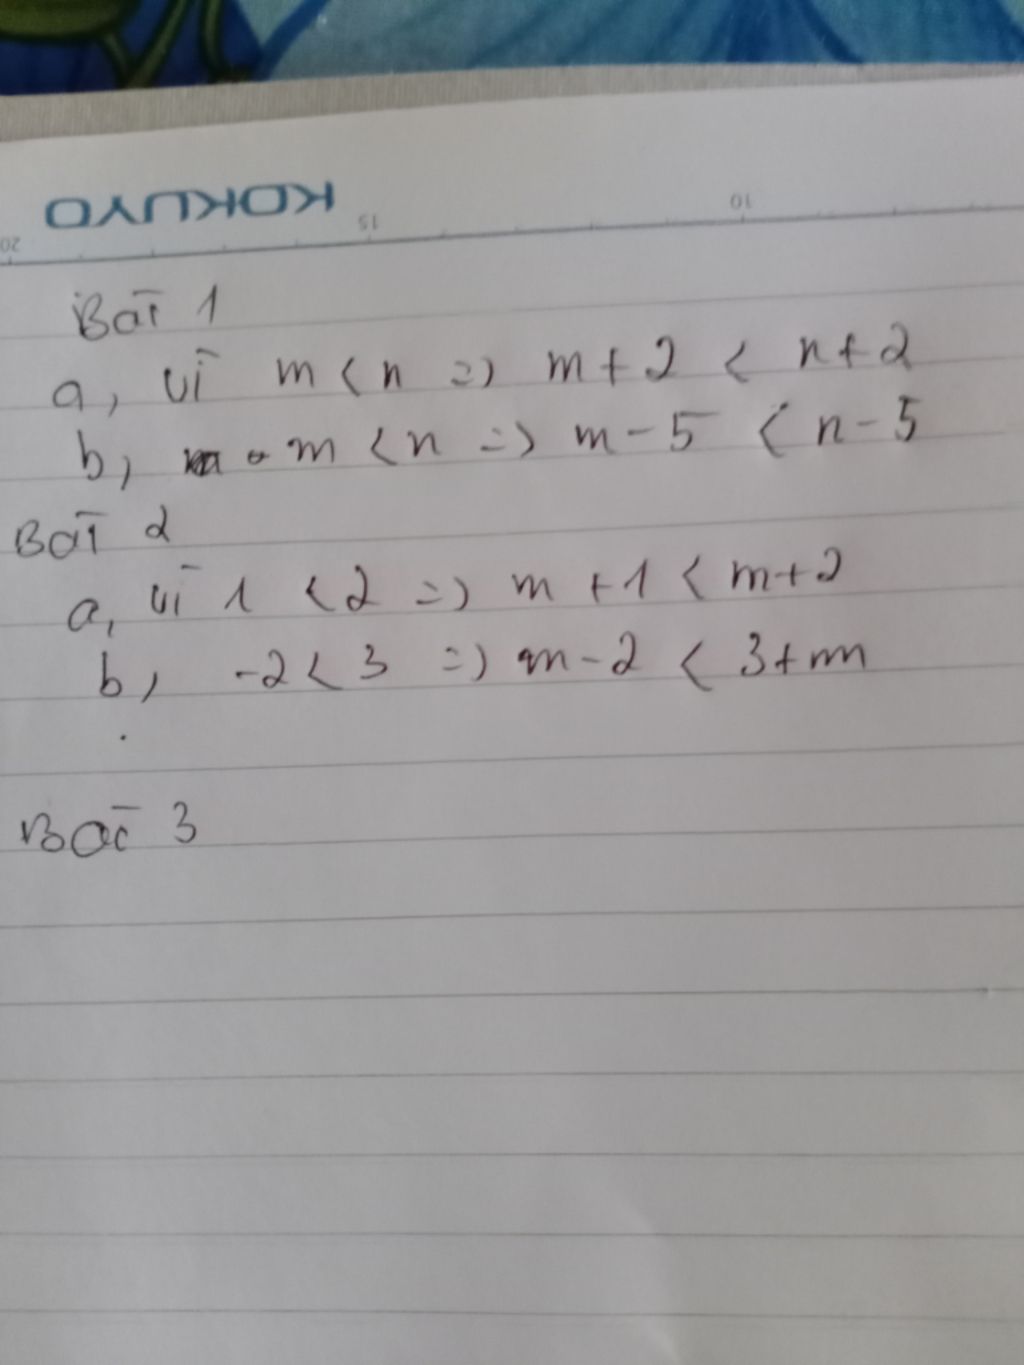 KOKUYO
20 15 10
Bài 1
a, vì m < n => m + 2 < n + 2
b, m < n => m - 5 < n - 5
Bài 2
a, vì 1 < 2 => m + 1 < m + 2
b, -2 < 3 => m - 2 < 3 + m
Bài 3